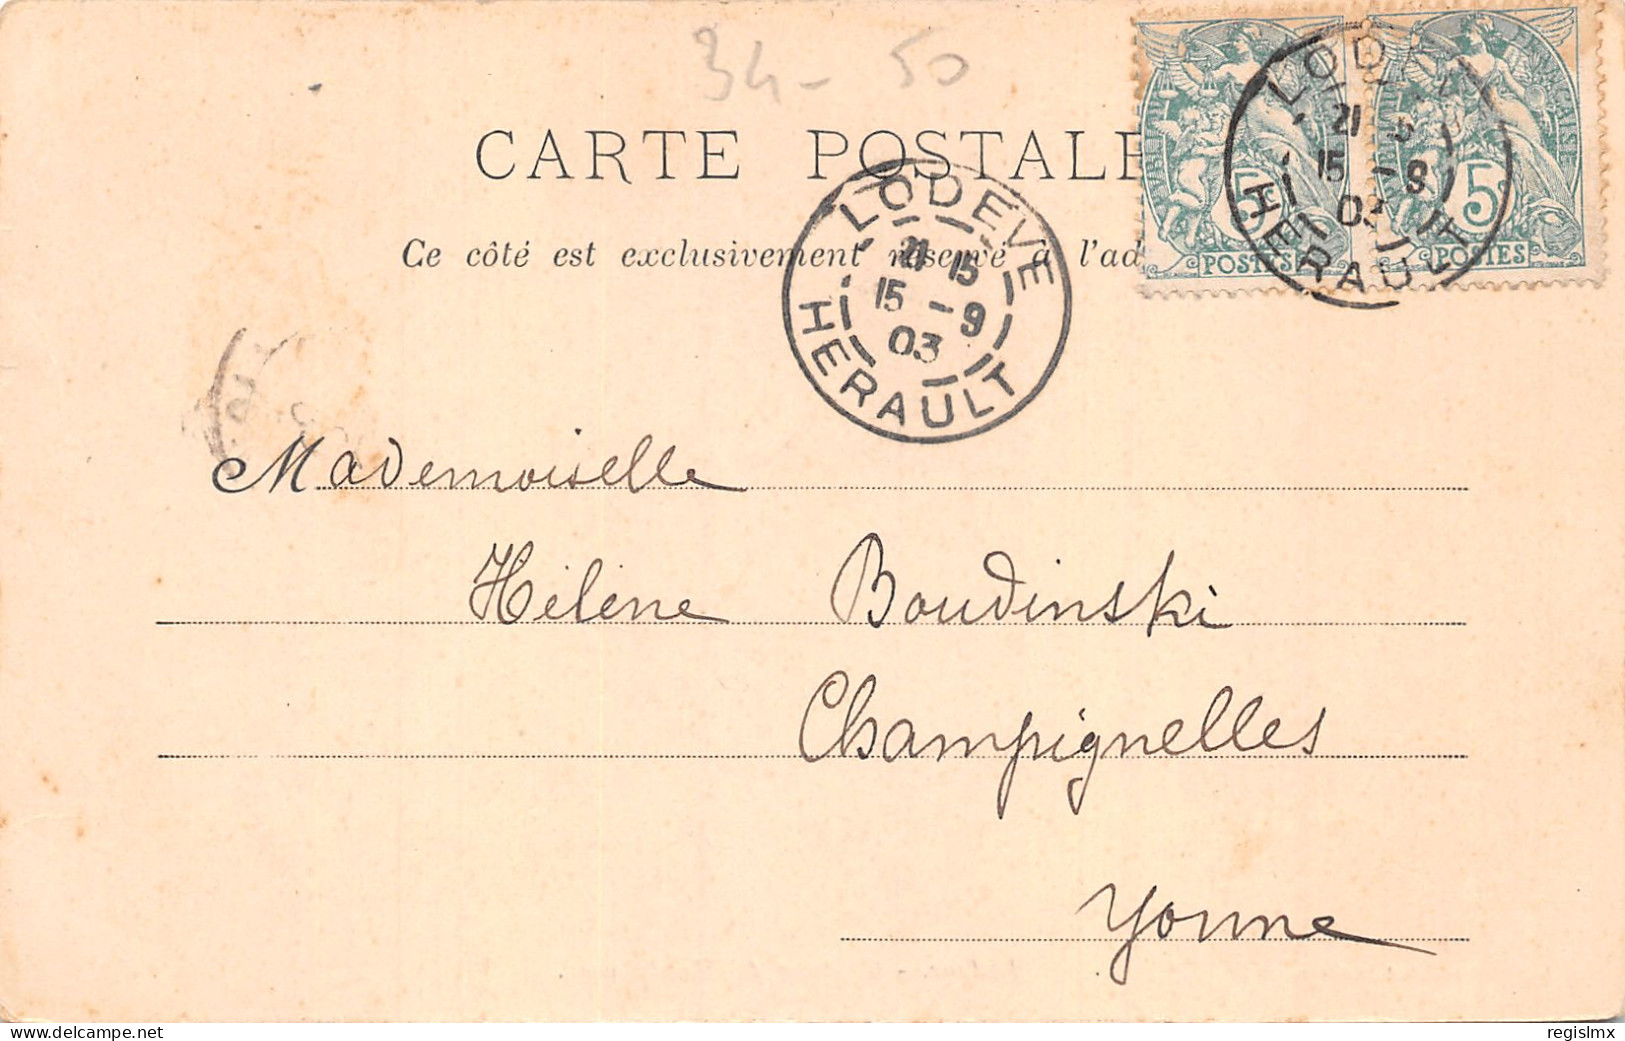 34 - 50
CARTE POSTALE
Ce côté est exclusivement réservé à l'ad
LODEVE
21 15
15 - 9
03
HERAULT
RANÇAISE
5
POSTES
5
POSTES
LODEVE
21
15 - 9
03
HERAULT
Mademoiselle
Hélène Boudinski
Champignelles
Yonne
www.delcampe.net
regislmx